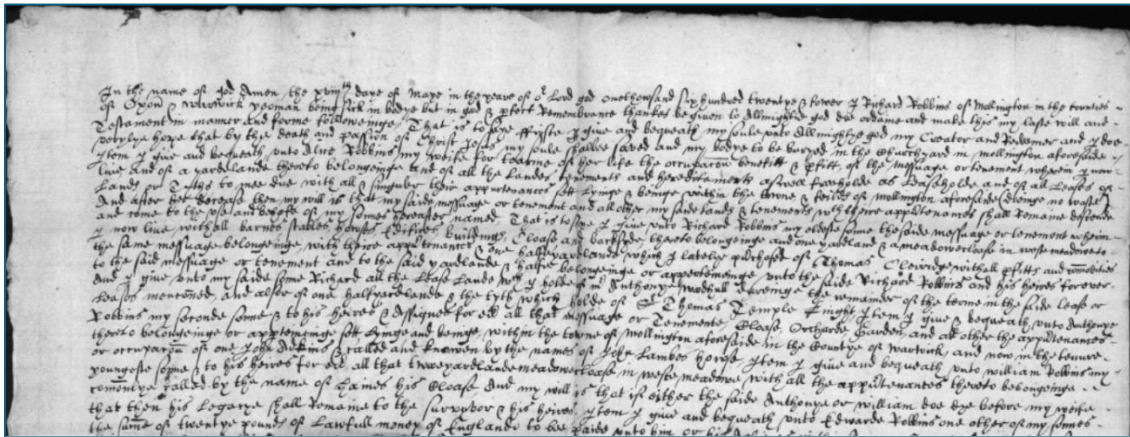 In the name of god Amen the xviiith daye of Maye in the yeare of or Lord god onethousand six hundred twentye & fower I Richard Robbins of Mollington in the counties
of Oxon & Warwick yeoman being sick in bodye but in god & pfect Remembrance thankes be given to Allmightie god doe ordaine and make this my laste will and
Testament in maner and forme followeinge That is to saye ffirste I give and bequeath my soule unto Allmightye god my Creator and Redemer and I doe
verylye hope that by the death and passion of Christ Jesus my soule shalbee saved and my bodye to be buryed in the Churchyard in mollington aforesaide
Item I give and bequeath unto Alice Robbins my weife for tearme of her life the occupacon benefitt & pfitt of the messuage or tenement wherein I now
live and of a yardelande thereto belongeinge and of all the Landes tenements and hereditaments aswell freeholde as Leaseholde and of all Leases of
Lands or Tyths to mee due with all & singuler their appurtenances lyinge & beinge within the towne & feildes of mollington aforesaide
And after her decease then my will is that my saide messuage or tenement and all other my saide Lands & tenements with there apptenances shall Remaine discende
and come to the use and behofe of my sonnes hereafter named That is to saye I give unto Richard Robbins my oldest sonne the saide messuage or tenement wherein
I now live with all barnes stables howses Edifices buildings Close and backside thereto belongeinge and one yardland & a meadowe close in weste meadowe to
the same messuage belongeinge with theire apptenances & one halfe yardelande which I latelye purchased of Thomas Cleridge withall pfitts and comodities
to the saide messuage or tenement and to the saide yardlande & halfe belongeinge or apperteineinge unto the saide Richard Robbins and his heires forever
And I give unto my saide sonne Richard all the Lease Lande wch I holde of Anthonye Wodhull dureinge the remainder of the terme in the saide lease or
Leases mencioned and alsoe of one halfyardelande & the tyth which I holde of Sr Thomas Temple Knight Item I give & bequeath unto Anthonye
Robbins my seconde sonne & to his heires & Assignes for ever all that messuage or Tenemente Close Orcharde Garden and all other the apptenances
thereto belongeinge or apptayneinge lyinge and beinge within the towne of mollington aforesaide in the Countye of Warwick and now in the tenure
or occupacon of one John & called and knowen by the names of John Lambes howse Item I give and bequeath unto William Robbins my
youngeste sonne & to his heires for ever all that twoe yardelande meadowe close in weste meadowe with all the apptenances thereto belongeinge
comonlye called by the name of Haines his Close And my will is that if either the saide Anthonye or William doe dye before my weife
that then his Legacye shall Remaine to the survivor & his heires Item I give and bequeath unto Edwarde Robbins one other of my sonnes
the same of twentye pounds of Lawfull money of Englande to be paide unto him or his